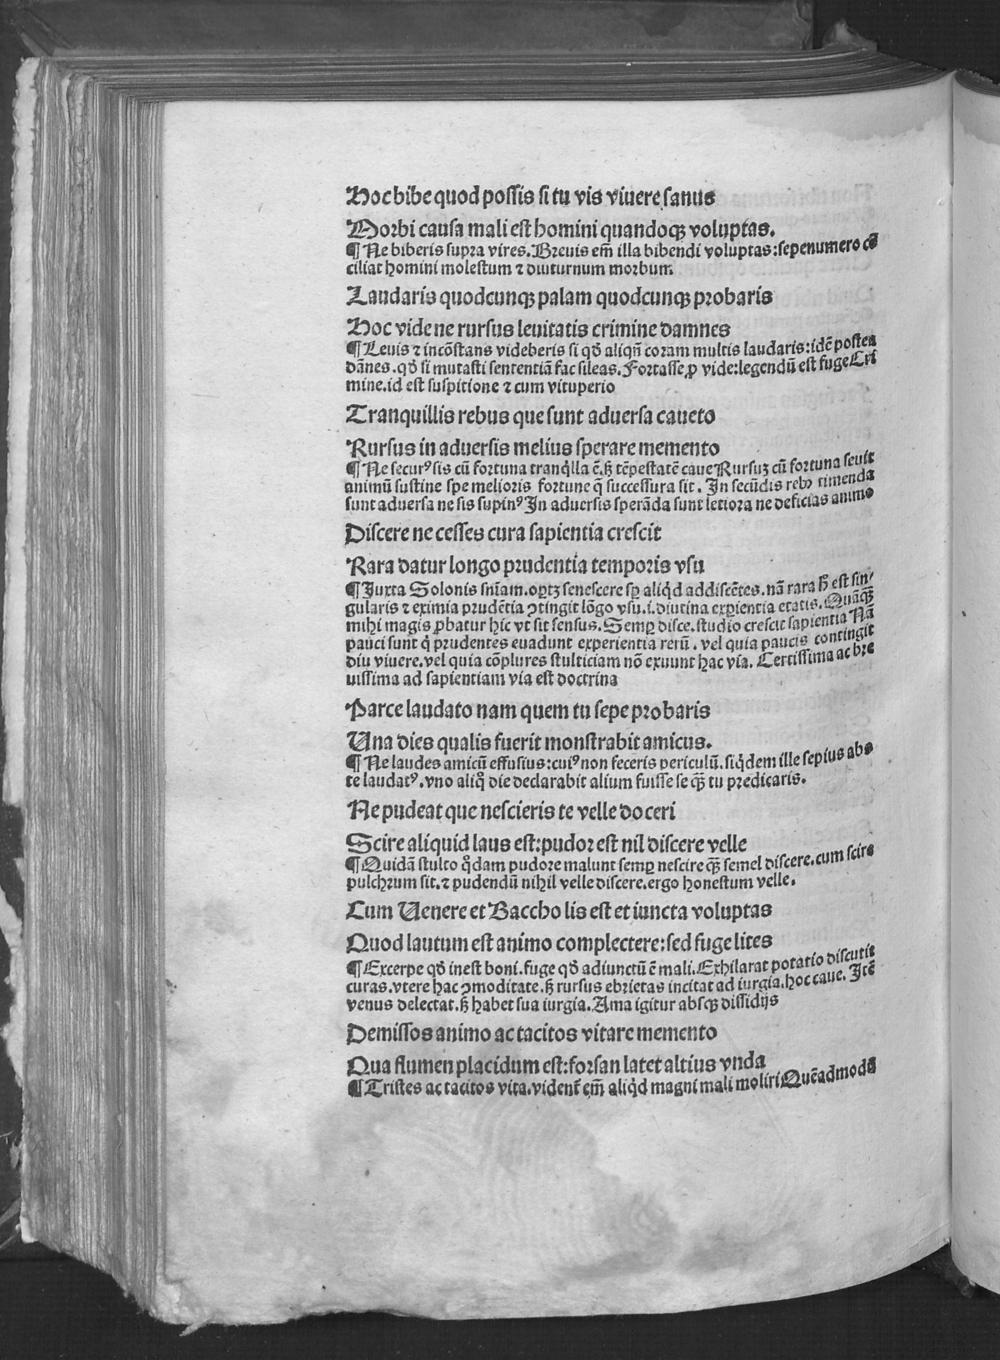 Hoc bibe quod possis si tu vis viuere sanus
Morbi causa mali est homini quandoqꝫ voluptas.
¶ Ne biberis supra vires. Breuis em̄ illa bibendi voluptas: sepenumero cō
ciliat homini molestum ⁊ diuturnum morbum
Laudaris quodcunqꝫ palam quodcunqꝫ probaris
Hoc vide ne rursus leuitatis crimine damnes
¶ Leuis ⁊ incōstans videberis si qd̄ aliqñ coram multis laudaris: idē postea
dānes. qd̄ si mutasti sententiā fac sileas. Fortasse ꝓ vide: legendū est fuge Cri
mine. id est suspitione ⁊ cum vituperio
Tranquillis rebus que sunt aduersa caueto
Rursus in aduersis melius sperare memento
¶ Ne securꝰ sis cū fortuna tranq̇lla ē. sꝫ tēpestatē caue Rursuꝫ cū fortuna seuit
animū sustine spe melioris fortune q̄ successura sit. In secūdis rebꝰ timenda
sunt aduersa ne sis supinꝰ In aduersis sperāda sunt letiora ne deficias animo
Discere ne cesses cura sapientia crescit
Rara datur longo prudentia temporis vsu
¶ Juxta Solonis sniam. oꝑtꝫ senescere sꝑ aliq̇d addiscētes. nā rara hꝫ est sin⸗
gularis ⁊ eximia prudētia ꝯtingit lōgo vsu. i. diutina exꝑientia etatis. Quāqꝫ
mihi magis ꝓbatur hic vt sit sensus. Semꝑ disce. studio crescit sapientia Nā
pauci sunt q̇ prudentes euadunt experientia rerū. vel quia paucis contingit
diu viuere. vel quia cōplures stulticiam nō exuunt hac via. Certissima ac bre
uissima ad sapientiam via est doctrina
Parce laudato nam quem tu sepe probaris
Una dies qualis fuerit monstrabit amicus.
¶ Ne laudes amicū effusius: cuiꝰ non feceris periculū. siq̇dem ille sepius abs
te laudatꝰ. vno aliq̊ die declarabit alium fuisse se qꝫ tu predicaris.
Ne pudeat que nescieris te velle doceri
Scire aliquid laus est: pudor est nil discere velle
¶ Quidā stulto q̊dam pudore malunt semꝑ nescire qꝫ semel discere. cum scire
pulchrum sit. ⁊ pudendū nihil velle discere. ergo honestum velle.
Cum Uenere et Baccho lis est et iuncta voluptas
Quod lautum est animo complectere: sed fuge lites
¶ Excerpe qd̄ inest boni. fuge qd̄ adiunctū ē mali. Exhilarat potatio discutit
curas. vtere hac ꝯmoditate. sꝫ rursus ebrietas incitat ad iurgia. hoc caue. Itē
venus delectat. sꝫ habet sua iurgia. Ama igitur absqꝫ dissidijs
Demissos animo ac tacitos vitare memento
Qua flumen placidum est: forsan latet altius vnda
¶ Tristes ac tacitos vita. vident̄ em̄ aliq̇d magni mali moliri Quēadmodū